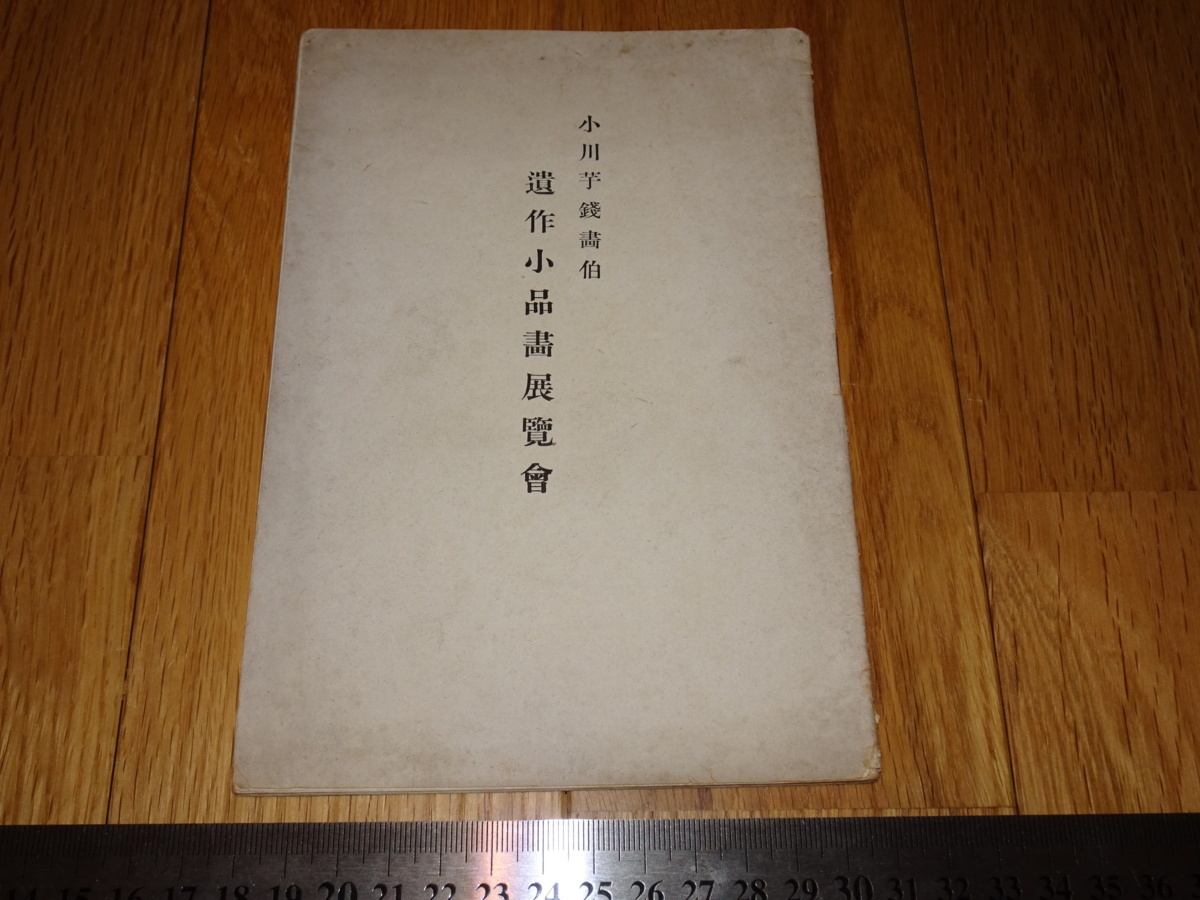 小川芋錢畵伯
遺作小品畵展覽會
14 15 16 17 18 19 20 21 22 23 24 25 26 27 28 29 30 31 32 33 34 35 36